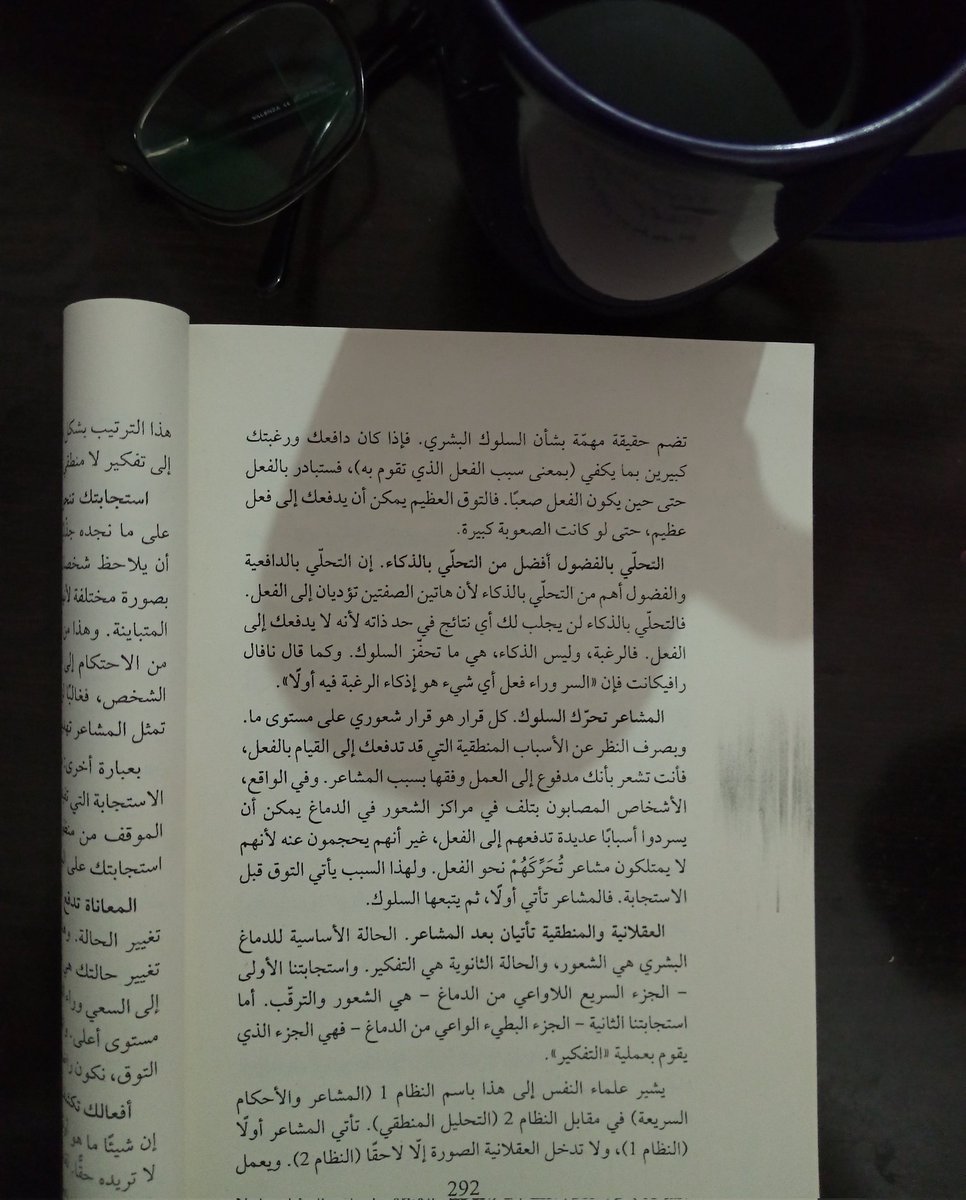 تضم حقيقة مهمّة بشأن السلوك البشري. فإذا كان دافعك ورغبتك
كبيرين بما يكفي (بمعنى سبب الفعل الذي تقوم به)، فستبادر بالفعل
حتى حين يكون الفعل صعبًا. فالتوق العظيم يمكن أن يدفعك إلى فعل
عظيم، حتى لو كانت الصعوبة كبيرة.
التحلّي بالفضول أفضل من التحلّي بالذكاء. إن التحلّي بالدافعية
والفضول أهم من التحلّي بالذكاء لأن هاتين الصفتين تؤديان إلى الفعل.
فالتحلّي بالذكاء لن يجلب لك أي نتائج في حد ذاته لأنه لا يدفعك إلى
الفعل. فالرغبة، وليس الذكاء، هي ما تحفّز السلوك. وكما قال نافال
رافيكانت فإن «السر وراء فعل أي شيء هو إذكاء الرغبة فيه أولًا».
المشاعر تحرّك السلوك. كل قرار هو قرار شعوري على مستوى ما.
وبصرف النظر عن الأسباب المنطقية التي قد تدفعك إلى القيام بالفعل،
فأنت تشعر بأنك مدفوع إلى العمل وفقها بسبب المشاعر. وفي الواقع،
الأشخاص المصابون بتلف في مراكز الشعور في الدماغ يمكن أن
يسردوا أسبابًا عديدة تدفعهم إلى الفعل، غير أنهم يحجمون عنه لأنهم
لا يمتلكون مشاعر تُحَرِّكَهُمْ نحو الفعل. ولهذا السبب يأتي التوق قبل
الاستجابة. فالمشاعر تأتي أولًا، ثم يتبعها السلوك.
العقلانية والمنطقية تأتيان بعد المشاعر. الحالة الأساسية للدماغ
البشري هي الشعور، والحالة الثانوية هي التفكير. واستجابتنا الأولى
– الجزء السريع اللاواعي من الدماغ – هي الشعور والترقّب. أما
استجابتنا الثانية – الجزء البطيء الواعي من الدماغ – فهي الجزء الذي
يقوم بعملية «التفكير».
يشير علماء النفس إلى هذا باسم النظام 1 (المشاعر والأحكام
السريعة) في مقابل النظام 2 (التحليل المنطقي). تأتي المشاعر أولًا
(النظام 1)، ولا تدخل العقلانية الصورة إلّا لاحقًا (النظام 2). ويعمل
292
هذا الترتيب بشكل
إلى تفكير لا
استجابتك
على ما نجده
أن يلاحظ
بصورة مختلفة
المتباينة. وهذا
من الاحتكام إلى
الشخص، فغالبًا
تمثل المشاعر
بعبارة أخرى
الاستجابة التي
الموقف من
استجابتك على
المعاناة تدفع
تغيير الحالة.
تغيير حالتك
إلى السعي
مستوى أعلى
التوق، نكون
أفعالك
إن شيئًا ما هو
لا تريده حقًّا